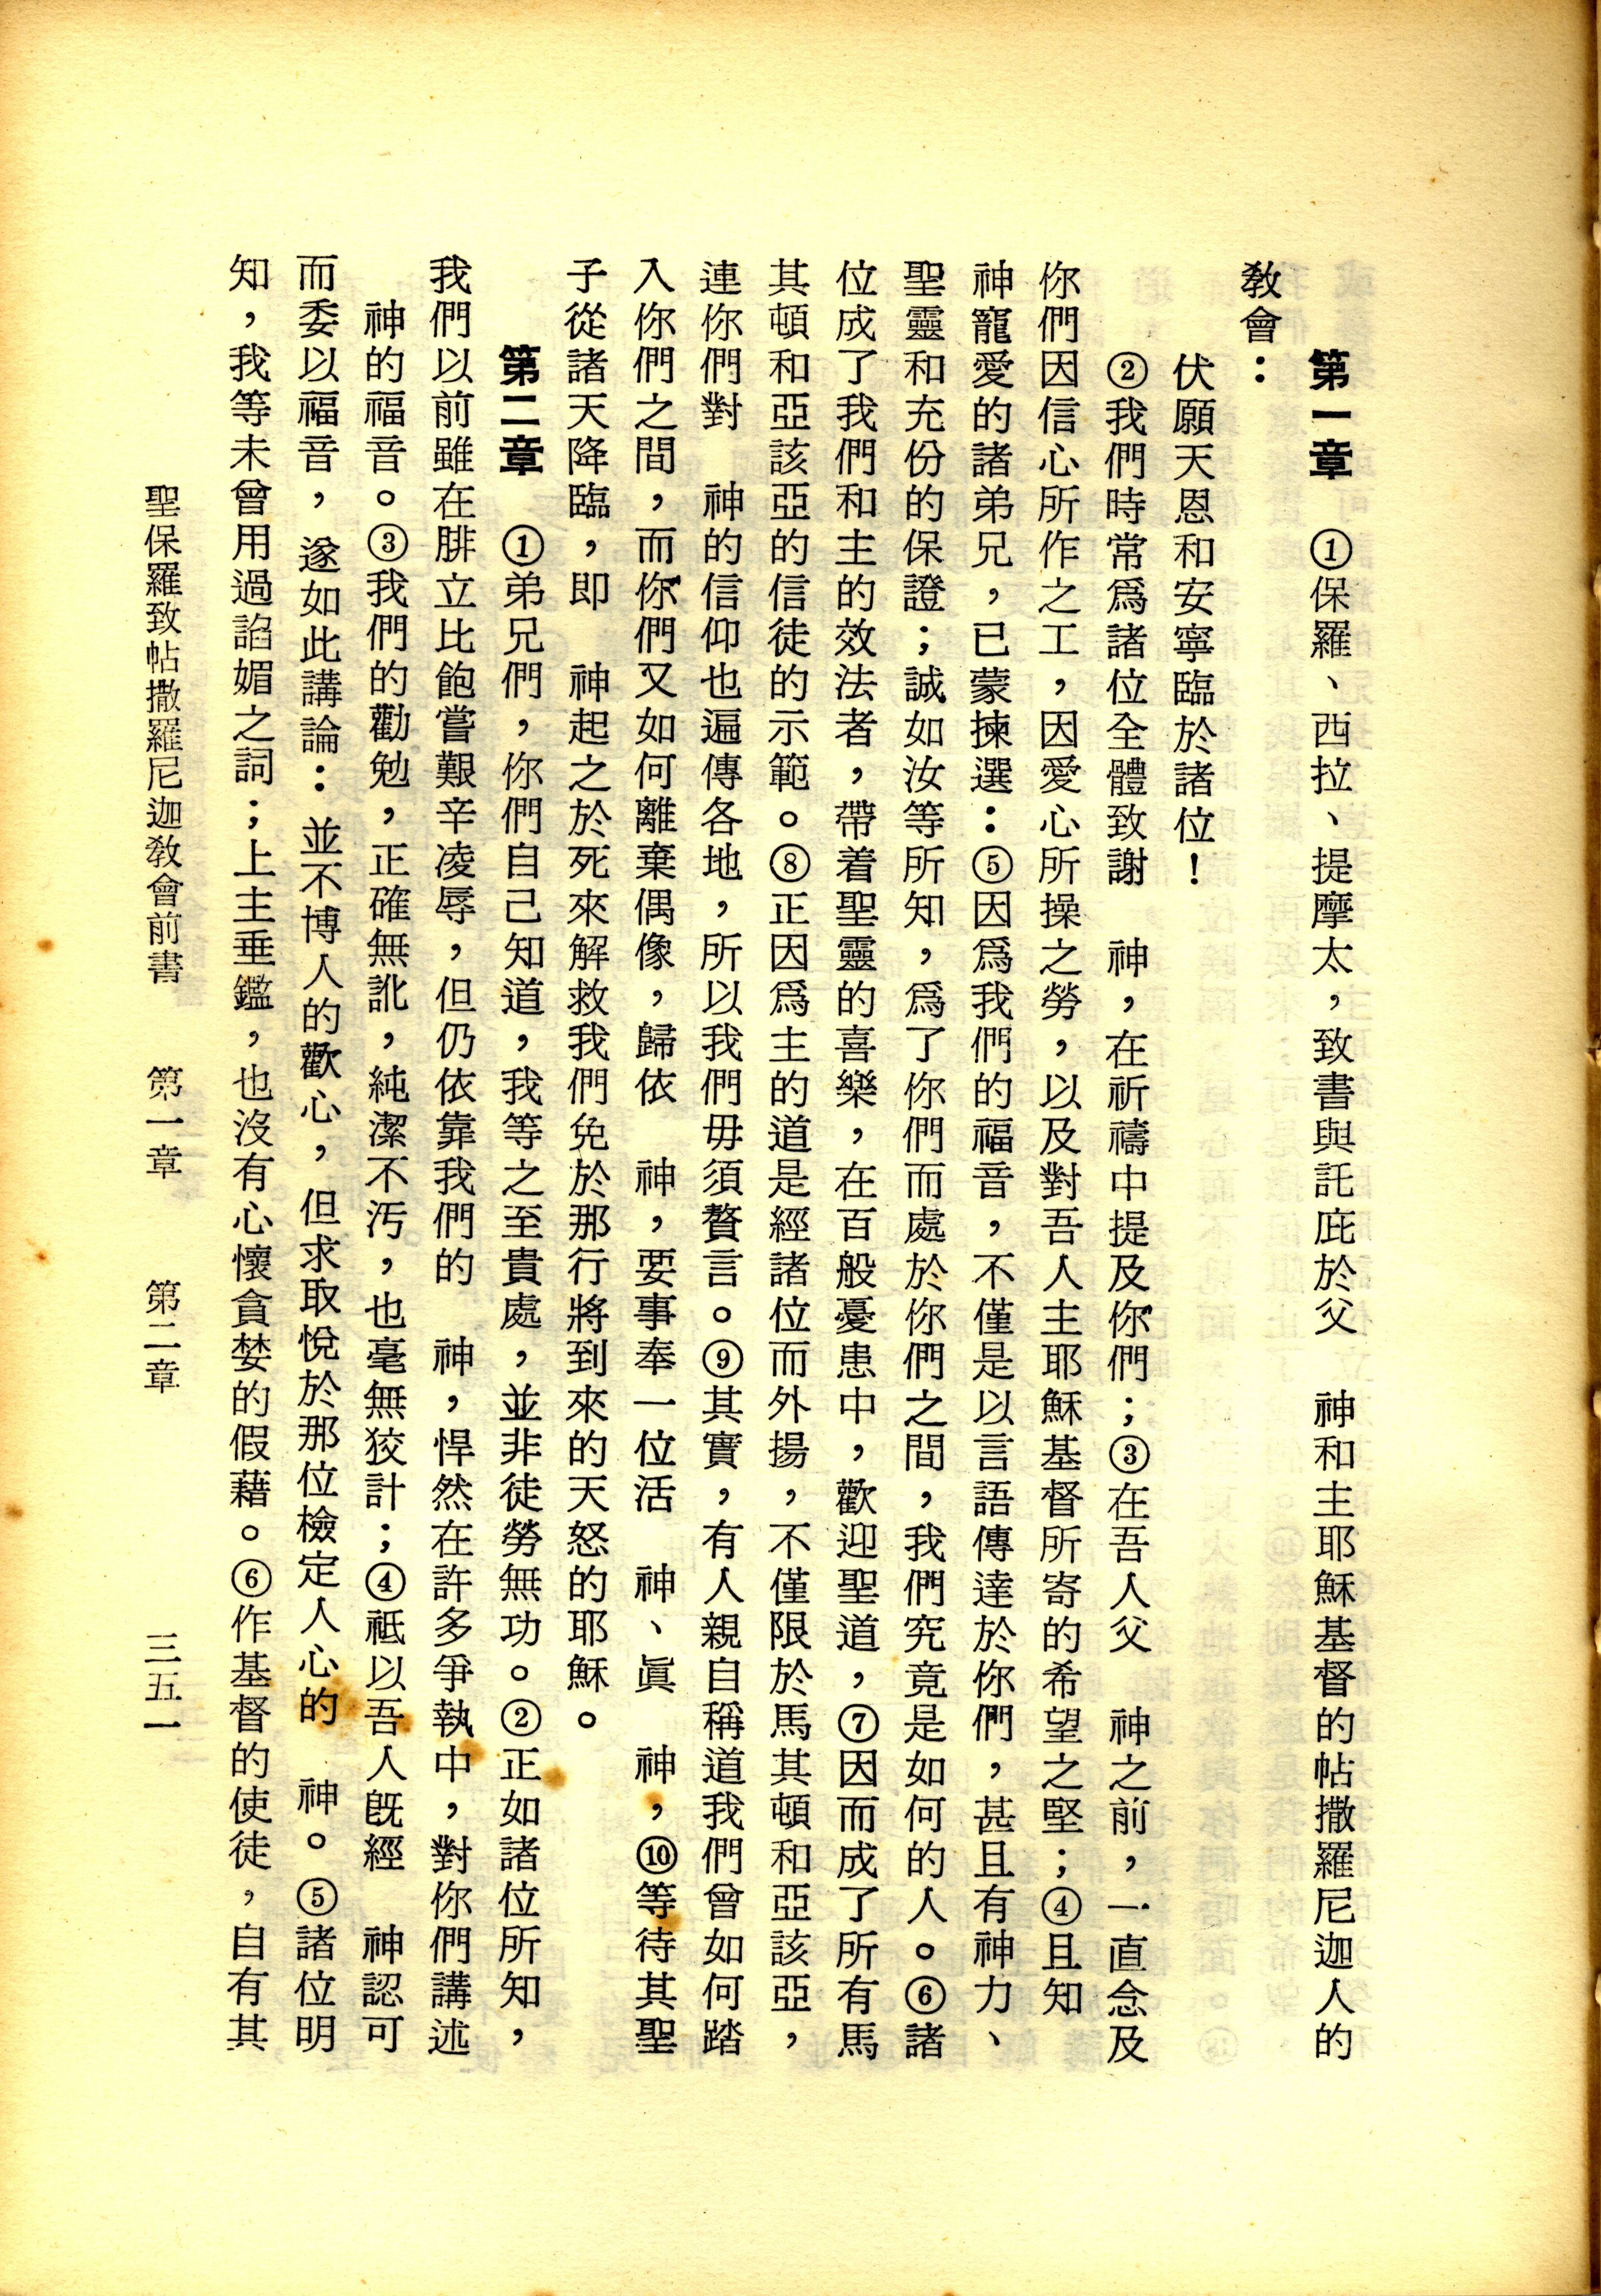 第一章　①保羅、西拉、提摩太，致書與託庇於父　神和主耶穌基督的帖撒羅尼迦人的
教會：
伏願天恩和安寧臨於諸位！
②我們時常爲諸位全體致謝　神，在祈禱中提及你們；③在吾人父　神之前，一直念及
你們因信心所作之工，因愛心所操之勞，以及對吾人主耶穌基督所寄的希望之堅；④且知
神寵愛的諸弟兄，已蒙揀選：⑤因爲我們的福音，不僅是以言語傳達於你們，甚且有神力、
聖靈和充份的保證；誠如汝等所知，爲了你們而處於你們之間，我們究竟是如何的人。⑥諸
位成了我們和主的效法者，帶着聖靈的喜樂，在百般憂患中，歡迎聖道，⑦因而成了所有馬
其頓和亞該亞的信徒的示範。⑧正因爲主的道是經諸位而外揚，不僅限於馬其頓和亞該亞，
連你們對　神的信仰也遍傳各地，所以我們毋須贅言。⑨其實，有人親自稱道我們曾如何踏
入你們之間，而你們又如何離棄偶像，歸依　神，要事奉一位活　神、眞　神，⑩等待其聖
子從諸天降臨，即　神起之於死來解救我們免於那行將到來的天怒的耶穌。
第二章　①弟兄們，你們自己知道，我等之至貴處，並非徒勞無功。②正如諸位所知，
我們以前雖在腓立比飽嘗艱辛凌辱，但仍依靠我們的　神，悍然在許多爭執中，對你們講述
神的福音。③我們的勸勉，正確無訛，純潔不汚，也毫無狡計；④祗以吾人旣經　神認可
而委以福音，遂如此講論：並不博人的歡心，但求取悅於那位檢定人心的　神。⑤諸位明
知，我等未曾用過諂媚之詞；上主垂鑑，也沒有心懷貪婪的假藉。⑥作基督的使徒，自有其
聖保羅致帖撒羅尼迦敎會前書　第一章　第二章　三五一